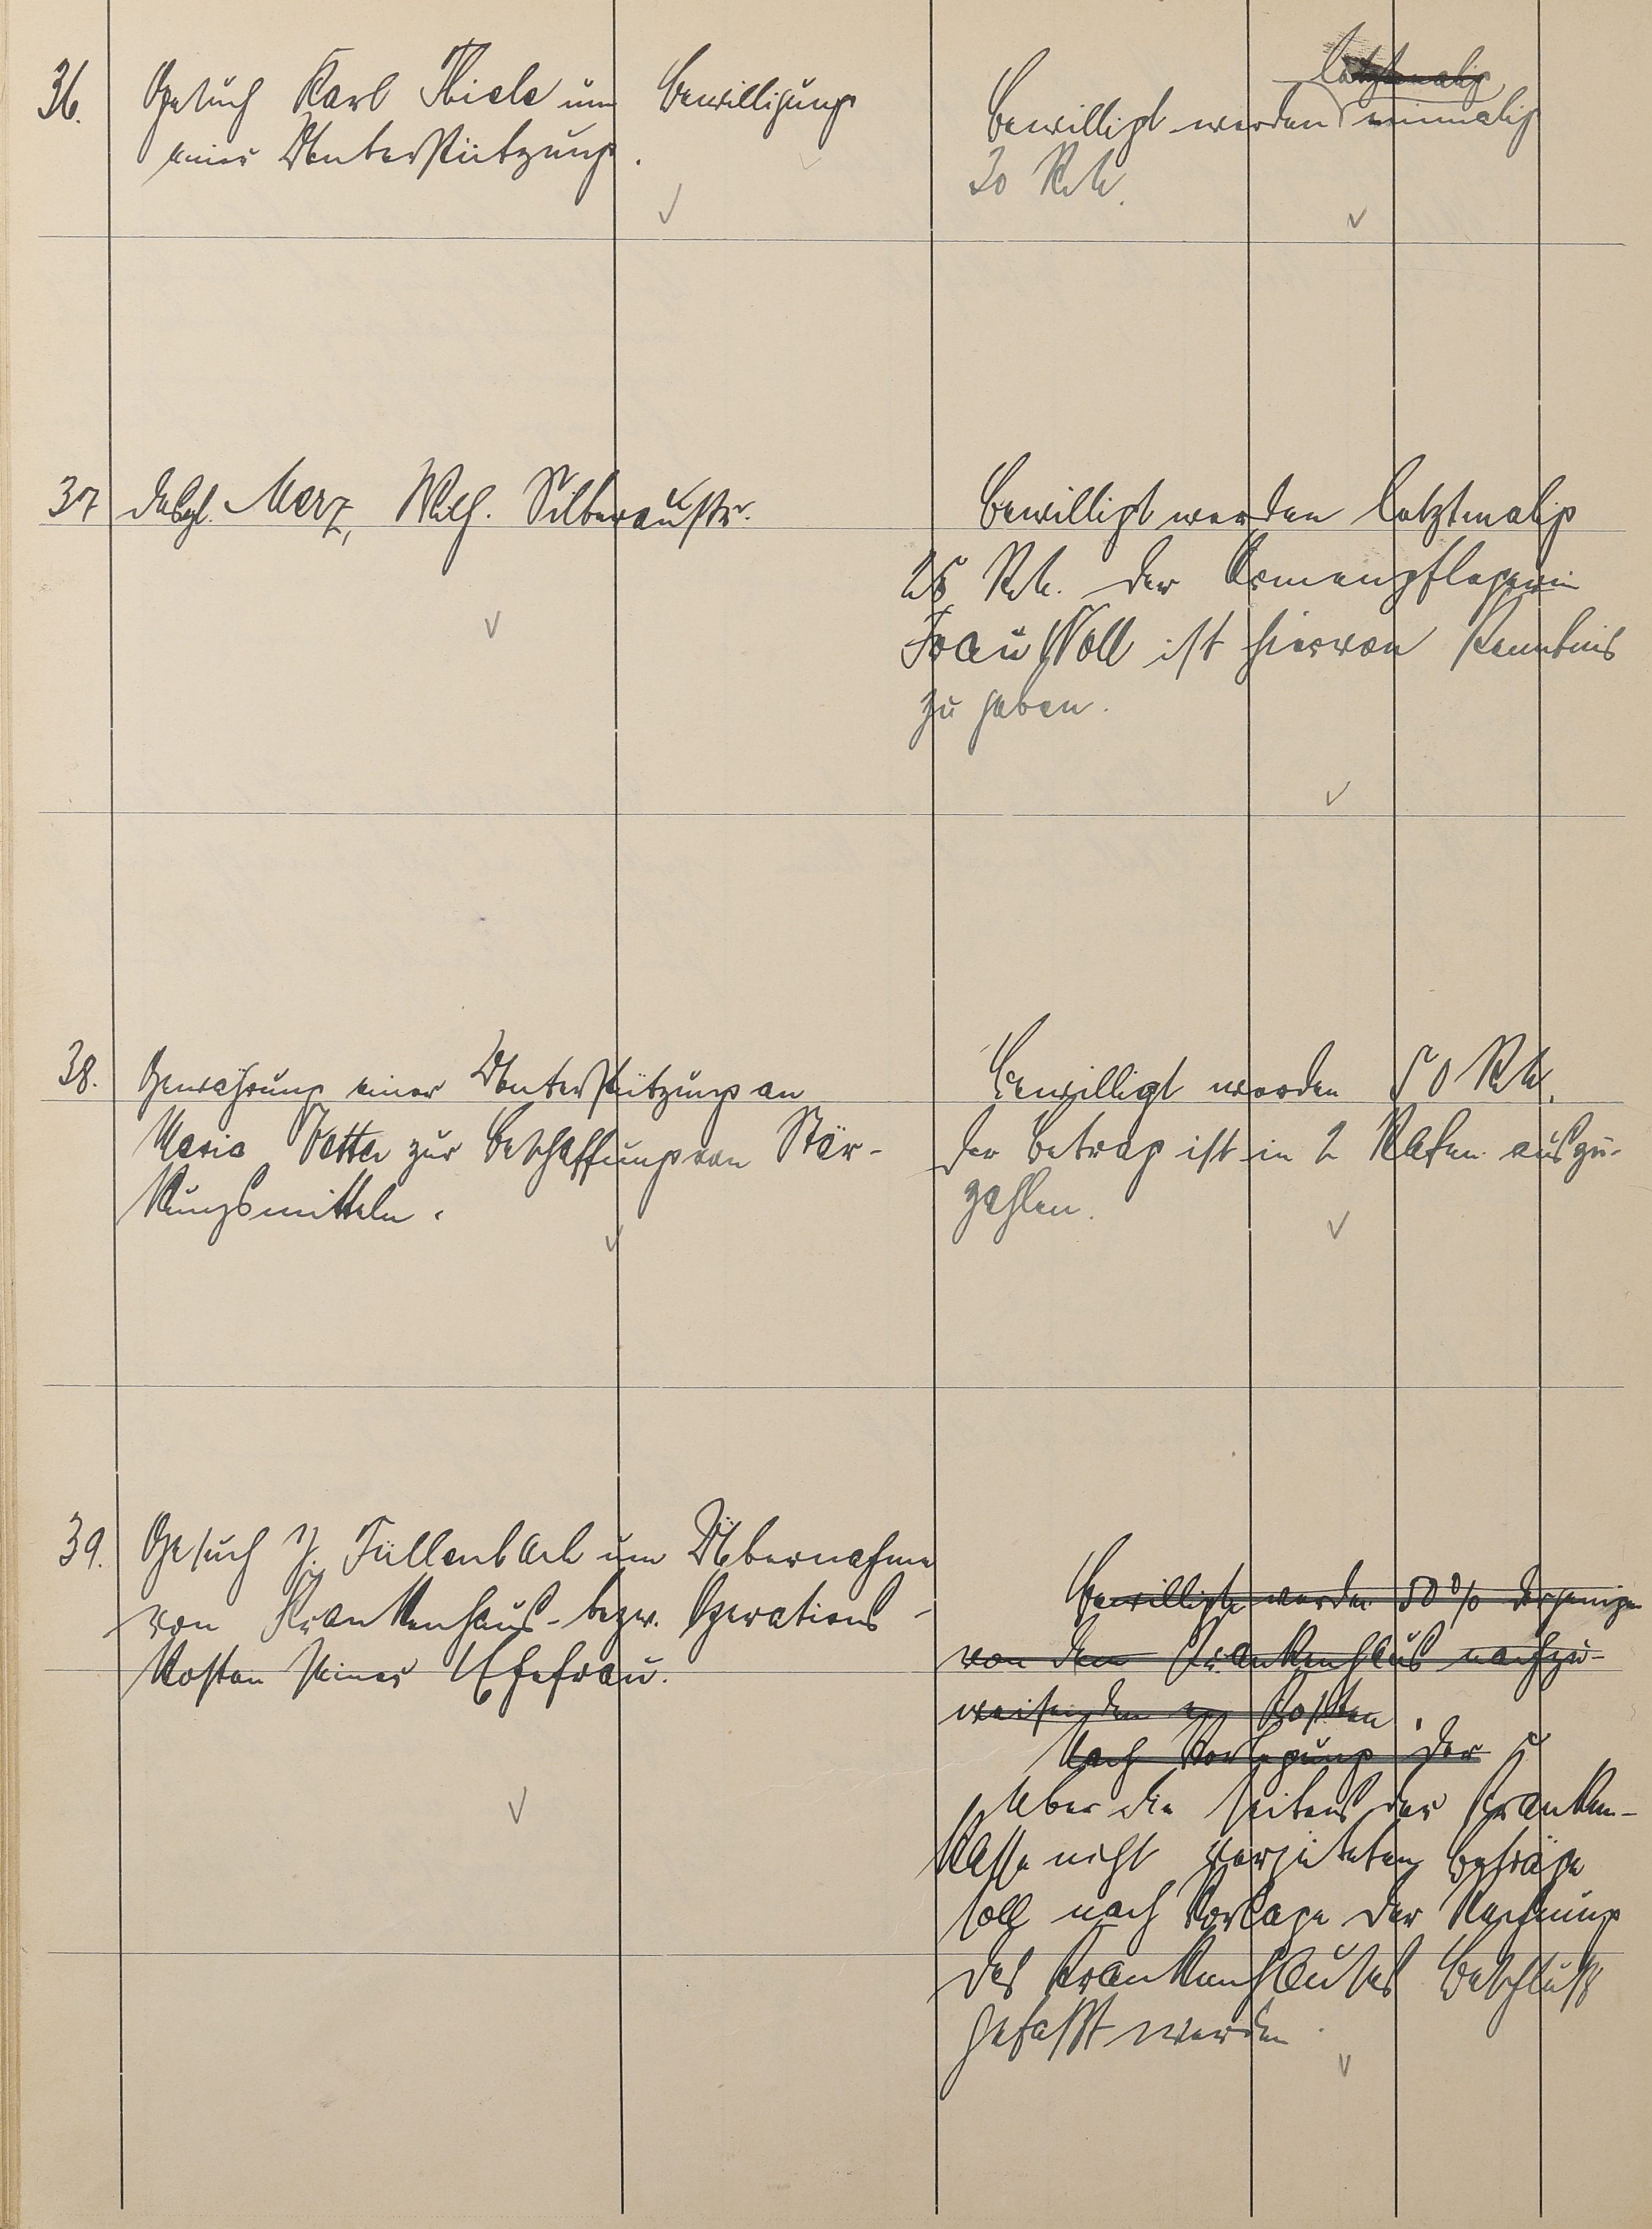 36. Gesuch Karl Thiele um Bewilligung
einer Unterstützung.
letztmalig
Bewilligt werden einmalig
30 RM.
37 desgl. Merz, Wilh. Silberaustr.
Bewilligt werden letztmalig
25 RM. Der Armenpflegerin
Frau Noll ist hiervon Kenntnis
zu geben.
38. Gewährung einer Unterstützung an
Maria Vetter zur Beschaffung von Stär-
kungsmitteln.
Bewilligt werden 50 RM.
Der Betrag ist in 2 Raten auszu-
zahlen.
39. Gesuch J. Füllenbach um Übernahme
von Krankenhaus- bezw. Operations-
kosten seiner Ehefrau.
Bewilligt werden 50% derjenigen
von dem Krankenhaus nachzu-
weisenden Kosten.
Nach Vorlegung der
Über die seitens der Kranken-
kasse nicht vergüteten Beträge
soll nach Vorlage der Rechnung
des Krankenhauses Beschluß
gefaßt werden.